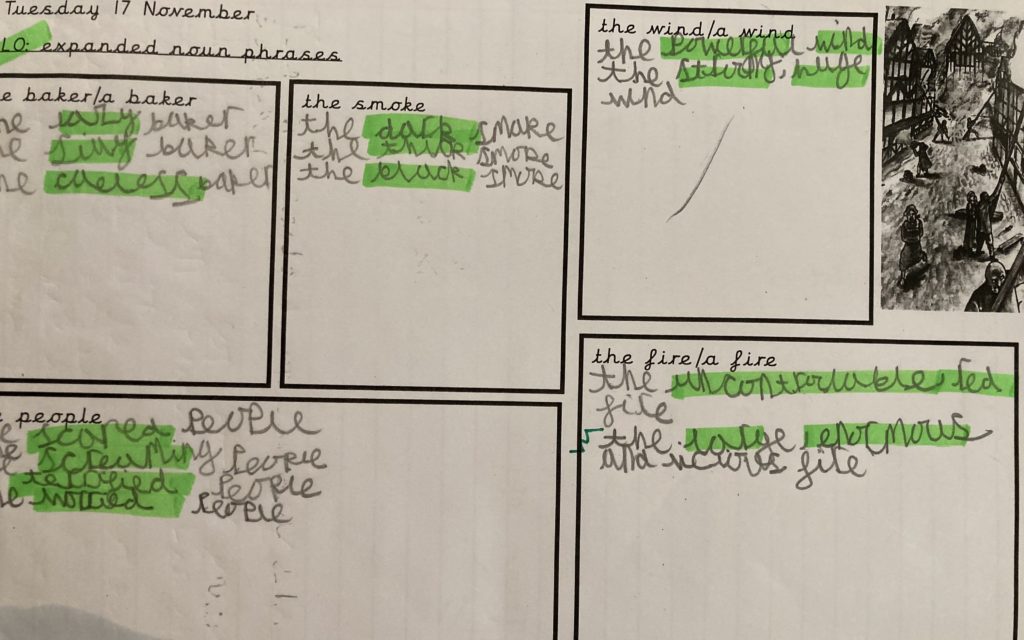 Tuesday 17 November
LO: expanded noun phrases
e baker/a baker
he lazy baker
he silly baker
he careless baker
the smoke
the dark smoke
the thick smoke
the black smoke
the wind/a wind
the powerful wind
the strong, huge
wind
people
e scared people
e screaming people
terrified people
he worried people
the fire/a fire
the uncontroulable, red
fire
the large enormous
and fire